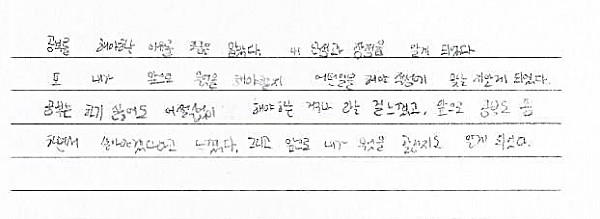 공부를 해야하는 이유를 조금은 알았다. 내 단점과 장점을 알게 되었다
또 내가 앞으로 무엇을 해야할지 어떤일을 해야 적성에 맞는 지알게 되었다.
공부는 하기 싫어도 어쩔수없이 해야 하는 거구나 라는 걸 느꼈고, 앞으로 공부도 좀
하면서 살아야겠다고 느꼈다. 그리고 앞으로 내가 무엇을 할건지도 알게 되었다.